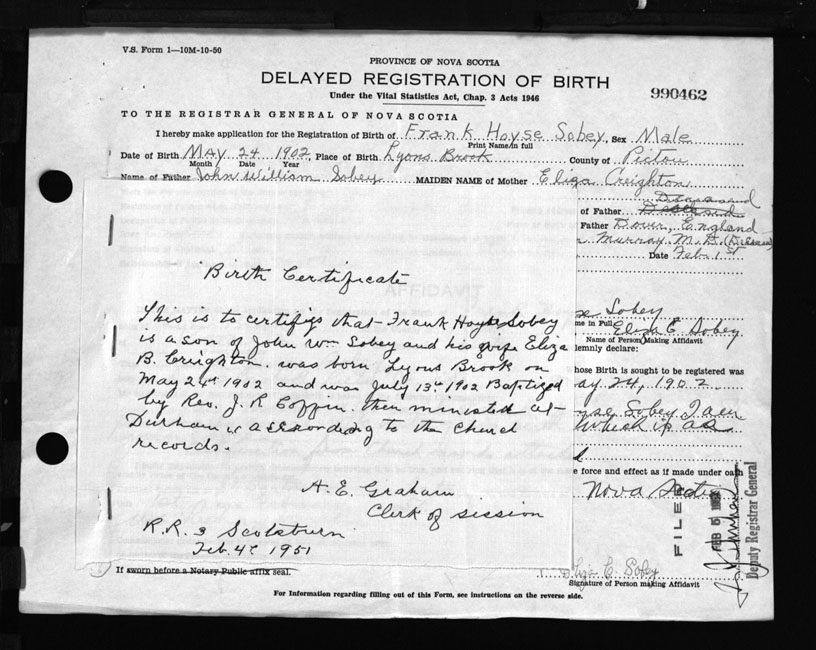 V.S. Form 1—10M-10-50
PROVINCE OF NOVA SCOTIA
DELAYED REGISTRATION OF BIRTH
990462
Under the Vital Statistics Act, Chap. 3 Acts 1946
TO THE REGISTRAR GENERAL OF NOVA SCOTIA
I hereby make application for the Registration of Birth of Frank Hoyse Sobey, Sex Male
Print Name in full
Date of Birth MAY 24 1902, Place of Birth Lyons Brook County of Pictou
Month Date Year
Name of Father John William Sobey MAIDEN NAME of Mother Eliza Creighton
Deceased
of Father Deceased
Father Dover, England
Murray M.D. (Deceased)
Date Feb 1st
Birth Certificate
AFFIDAVIT
This is to certifiy that Frank Hoyse Sobey
is a son of John Wm Sobey and his wife Eliza
B. Creighton. was born Lyons Brook on
May 24th 1902 and was July 13th 1902 Baptized
by Rev. J. R Coffin. then at
Durham according to the Church
records.
A. E. Graham
Clerk of session
R.R. 3 Scotsburn
Feb. 4th 1951
Sobey
me in Full Eliza E Sobey
Name of Person Making Affidavit
lemnly declare:
hose Birth is sought to be registered was
ay 24, 1902
Sobey I am
which is as
e force and effect as if made under oath
Nova Scotia
FILED
FEB 5
Deputy Registrar General
Eliza E Sobey
Signature of Person making Affidavit
If sworn before a Notary Public affix seal.
For Information regarding filling out of this Form, see instructions on the reverse side.